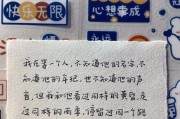 快乐无限
心想事成
我在等一个人,不知道他的名字,不
知道他的年纪,也不知道他的声
音,但我和他看过同样的黄昏,走
过同样的雨季,停留过同一个路